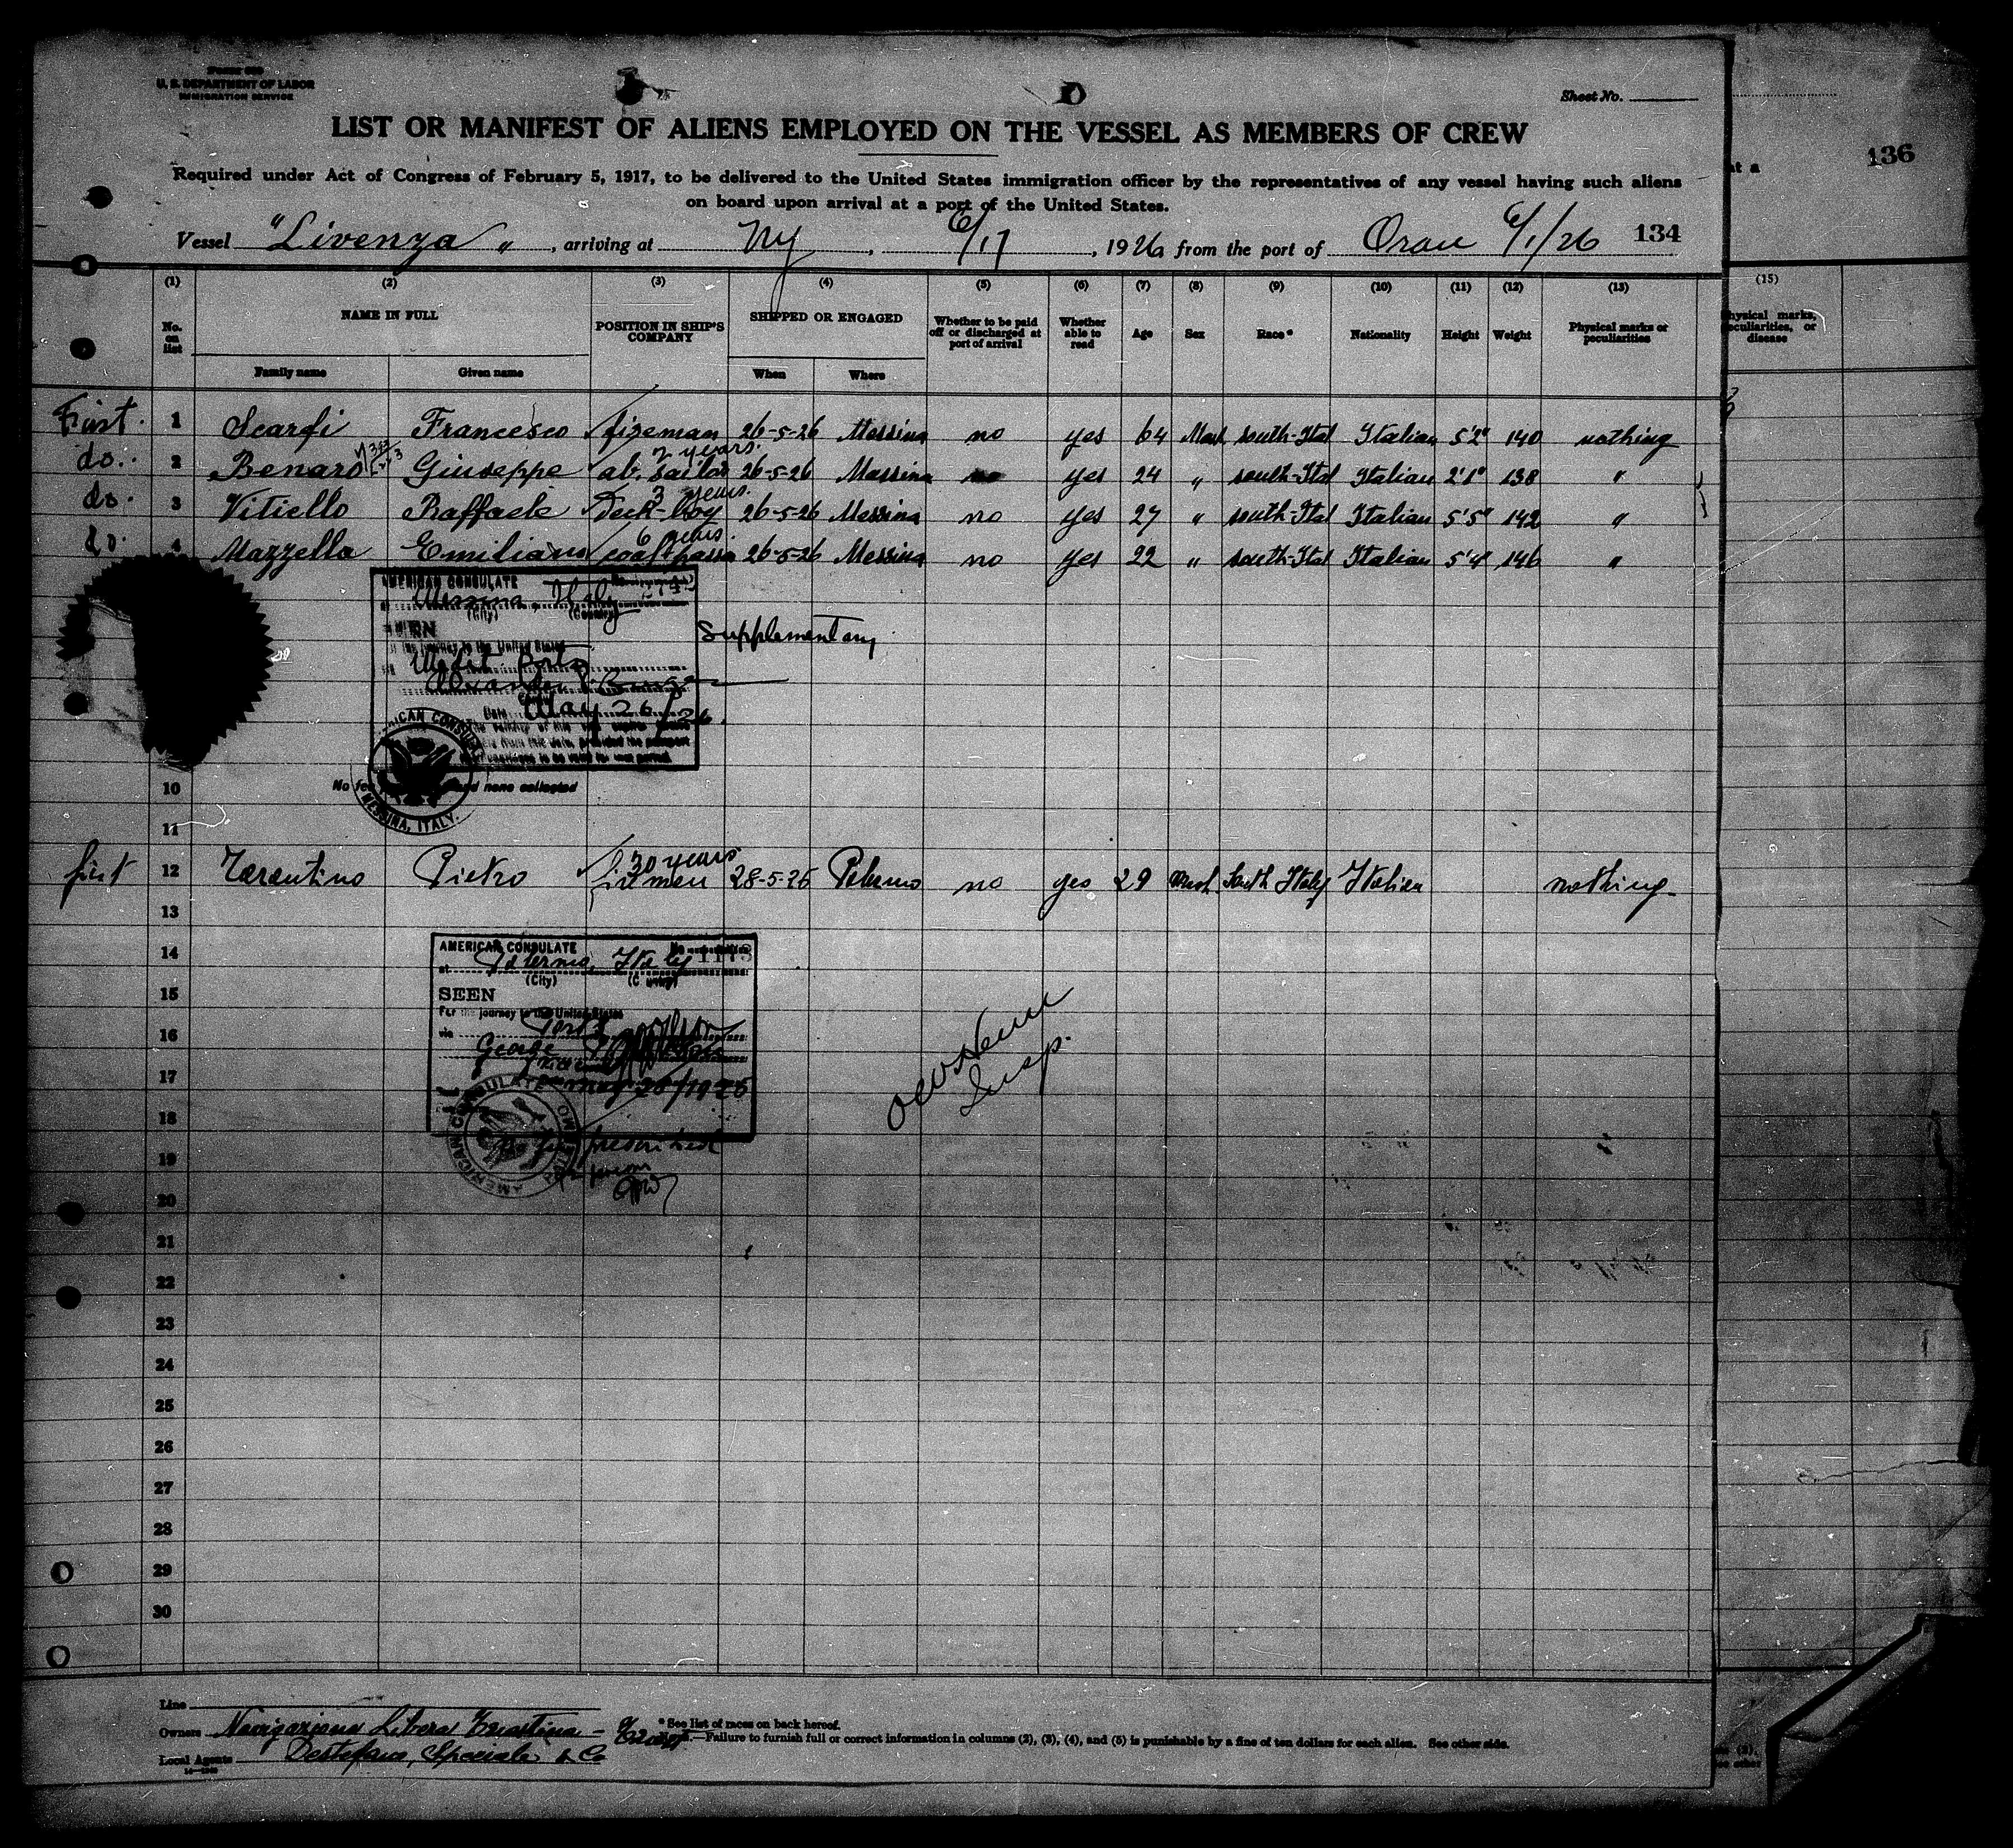 U. S. DEPARTMENT OF LABOR
IMMIGRATION SERVICE
Sheet No.
LIST OR MANIFEST OF ALIENS EMPLOYED ON THE VESSEL AS MEMBERS OF CREW
Required under Act of Congress of February 5, 1917, to be delivered to the United States immigration officer by the representatives of any vessel having such aliens
on board upon arrival at a port of the United States.
136
Vessel "Livenza", arriving at Ny, 6/17, 1926, from the port of Oran 6/1/26 134
(1) (2) (3) (4) (5) (6) (7) (8) (9) (10) (11) (12) (13) (15)
No. on list NAME IN FULL POSITION IN SHIP'S COMPANY SHIPPED OR ENGAGED Whether to be paid off or discharged at port of arrival Whether able to read Age Sex Race* Nationality Height Weight Physical marks or peculiarities
Physical marks, peculiarities, or disease
Family name Given name When Where
First. 1 Scarfi Francesco fireman 26-5-26 Messina no yes 64 south-Ital Italian 5'2" 140 nothing
2 years.
do. 2 Benaro Giuseppe ab. sailor 26-5-26 Messina no yes 24 " south-Ital Italian 2'1" 138 "
3 years.
do. 3 Vitiello Raffaele Deck-boy 26-5-26 Messina no yes 27 " south-Ital Italian 5'5" 142 "
6 years.
do. 4 Mazzella Emiliano 26-5-26 Messina no yes 22 " south-Ital Italian 5'4" 146 "
AMERICAN CONSULATE
Messina, Italy
(City) (Country)
Supplementary
the journey to the United States
Date May 26/26.
AMERICAN CONSULATE
MESSINA, ITALY.
No fee and none collected
10
11
30 years
first 12 Tarentino Pietro firemen 28-5-26 Palermo no yes 29 South Italy Italian nothing
13
14
AMERICAN CONSULATE
at Palermo, Italy
(City) (Country)
15
SEEN
For the journey to the United States
16
via
George
17
May 28/1926
18
AMERICAN CONSULATE PALERMO
19
20
Insp.
21
22
23
24
25
26
27
28
29
30
Line
Owners Navigazione Libera Triestina
Local Agents Destefano, Speciale & Co
*See list of races on back hereof.
Note.—Failure to furnish full or correct information in columns (2), (3), (4), and (5) is punishable by a fine of ten dollars for each alien. See other side.